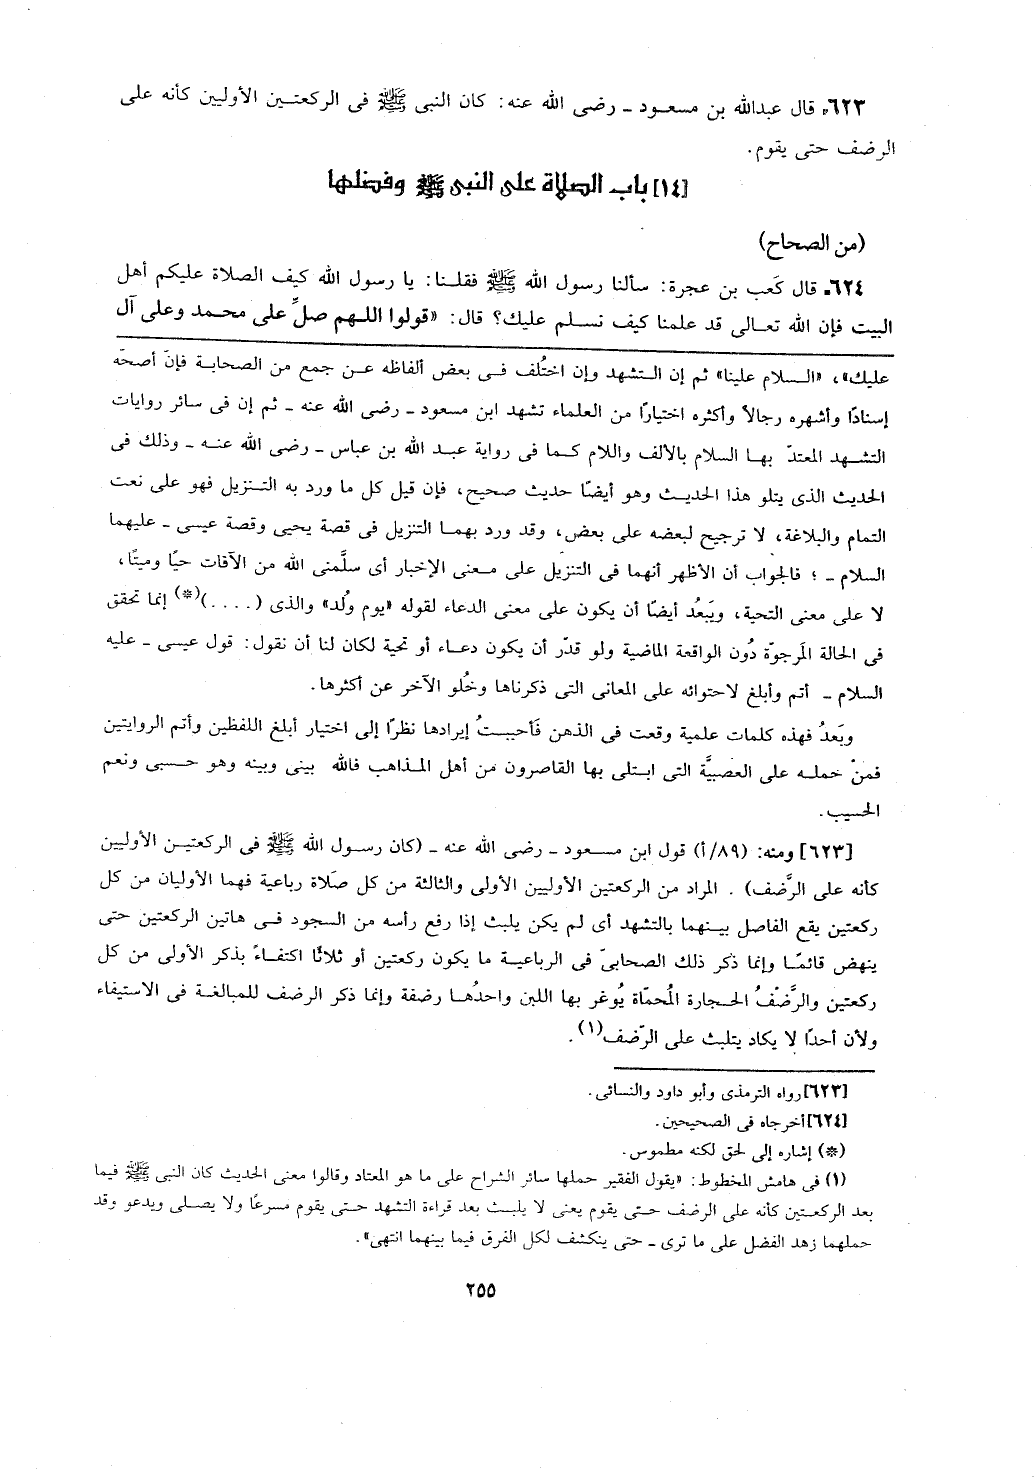 ٦٢٣ـ قال عبدالله بن مسعـود ـ رضى الله عنه: كان النبى ﷺ فى الركعتـين الأوليين كأنه على
الرضف حتى يقوم.
[١٤] باب الصلاة على النبى ﷺ وفضلها
(من الصحاح)
٦٢٤ـ قال كَعب بن عجرة: سألنا رسول الله ﷺ فقلـنا: يا رسول الله كيف الصلاة عليكم أهل
البيت فإن الله تعـالى قد علمنا كيف نسـلم عليك؟ قال: «قولوا اللـهم صلِّ على محـمد وعلى آل
عليك»، «السـلام علينا» ثم إن التـشهد وإن اختُلف فـى بعض ألفاظه عـن جمع من الصحابـة فإنّ أصحّه
إسنادًا وأشهره رجالاً وأكثره اختيارًا من العلماء تشهد ابن مسعود ـ رضى الله عنه ـ ثم إن فى سائر روايات
التشـهد المعتدّ بهـا السلام بالألف واللام كـما فى رواية عبـد الله بن عباس ـ رضى الله عنـه ـ وذلك فى
الحديث الذى يتلو هذا الحديـث وهو أيضًا حديث صحيح، فإن قيل كل ما ورد به التـنزيل فهو على نعت
التمام والبلاغة، لا ترجيح لبعضه على بعض، وقد ورد بهمـا التنزيل فى قصة يحيى وقصة عيسى ـ عليهما
السلام ـ ؛ فالجواب أن الأظهر أنهما فى التنزيل على مـعنى الإخبار أى سلَّمنى الله من الآفات حيًا وميتًا،
لا على معنى التحية، ويَبعُد أيضًا أن يكون على معنى الدعاء لقوله «يوم وُلد» والذى (....)(*) إنما تحقق
فى الحالة المَرجوّة دُون الواقعة الماضية ولو قدّر أن يكون دعـاء أو تحية لكان لنا أن نقول: قول عيسى ـ عليه
السلام ـ أتم وأبلغ لاحتوائه على المعانى التى ذكرناها وخُلو الآخر عن أكثرها.
وبَعدُ فهذه كلمات علمية وقعت فى الذهن فَأحببـتُ إيرادها نظرًا إلى اختيار أبلغ اللفظين وأتم الروايتين
فمنْ حملـه على العصبيَّة التى ابـتلى بها القاصرون مـن أهل المـذاهب فالله بينى وبينه وهو حـسبى ونعم
الحسيب.
[٦٢٣] ومنه: (٨٩/أ) قول ابن مسـعود ـ رضى الله عنه ـ (كان رسـول الله ﷺ فى الركعتيـن الأوليين
كأنه على الرَّضف) . المراد من الركعتين الأوليين الأولى والثالثة من كل صَلاة رباعية فهما الأوليان من كل
ركعتين يقع الفاصل بيـنهما بالتشهد أى لم يكن يلبث إذا رفع رأسه من السجود فـى هاتين الركعتين حتى
ينهض قائمًـا وإنما ذكر ذلك الصحابىّ فى الرباعيـة ما يكون ركعتين أو ثلاثًا اكتفـاءً بذكر الأولى من كل
ركعتين والرَّضْفُ الحـجارة المُحمّاة يُوغر بها اللبن واحدُهـا رضفة وإنما ذكر الرضف للمبالغـة فى الاستيفاء
ولأن أحدًا لا يكاد يتلبث على الرّضف(١).
[٦٢٣]رواه الترمذى وأبو داود والنسائى.
[٦٢٤]أخرجاه فى الصحيحين.
(*) إشاره إلى لحق لكنه مطموس.
(١) فى هامش المخطوط: «يقول الفقير حملها سائر الشراح على ما هو المعتاد وقالوا معنى الحديث كان النبى ﷺ فيما
بعد الركعـتين كأنه على الرضف حتـى يقوم يعنى لا يلبـث بعد قراءة التشهد حتـى يقوم مسرعًا ولا يصلى ويدعو وقد
حملهما زهد الفضل على ما ترى ـ حتى ينكشف لكل الفرق فيما بينهما انتهى».
٢٥٥